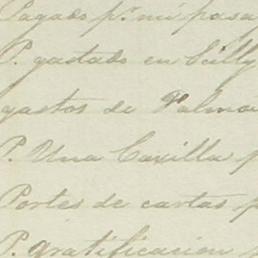 Pagado pr. mi pasa
P. gastado en Cully
gastos de Palma
P. Una Caxilla p
Portes de cartas p
P. gratificacion p